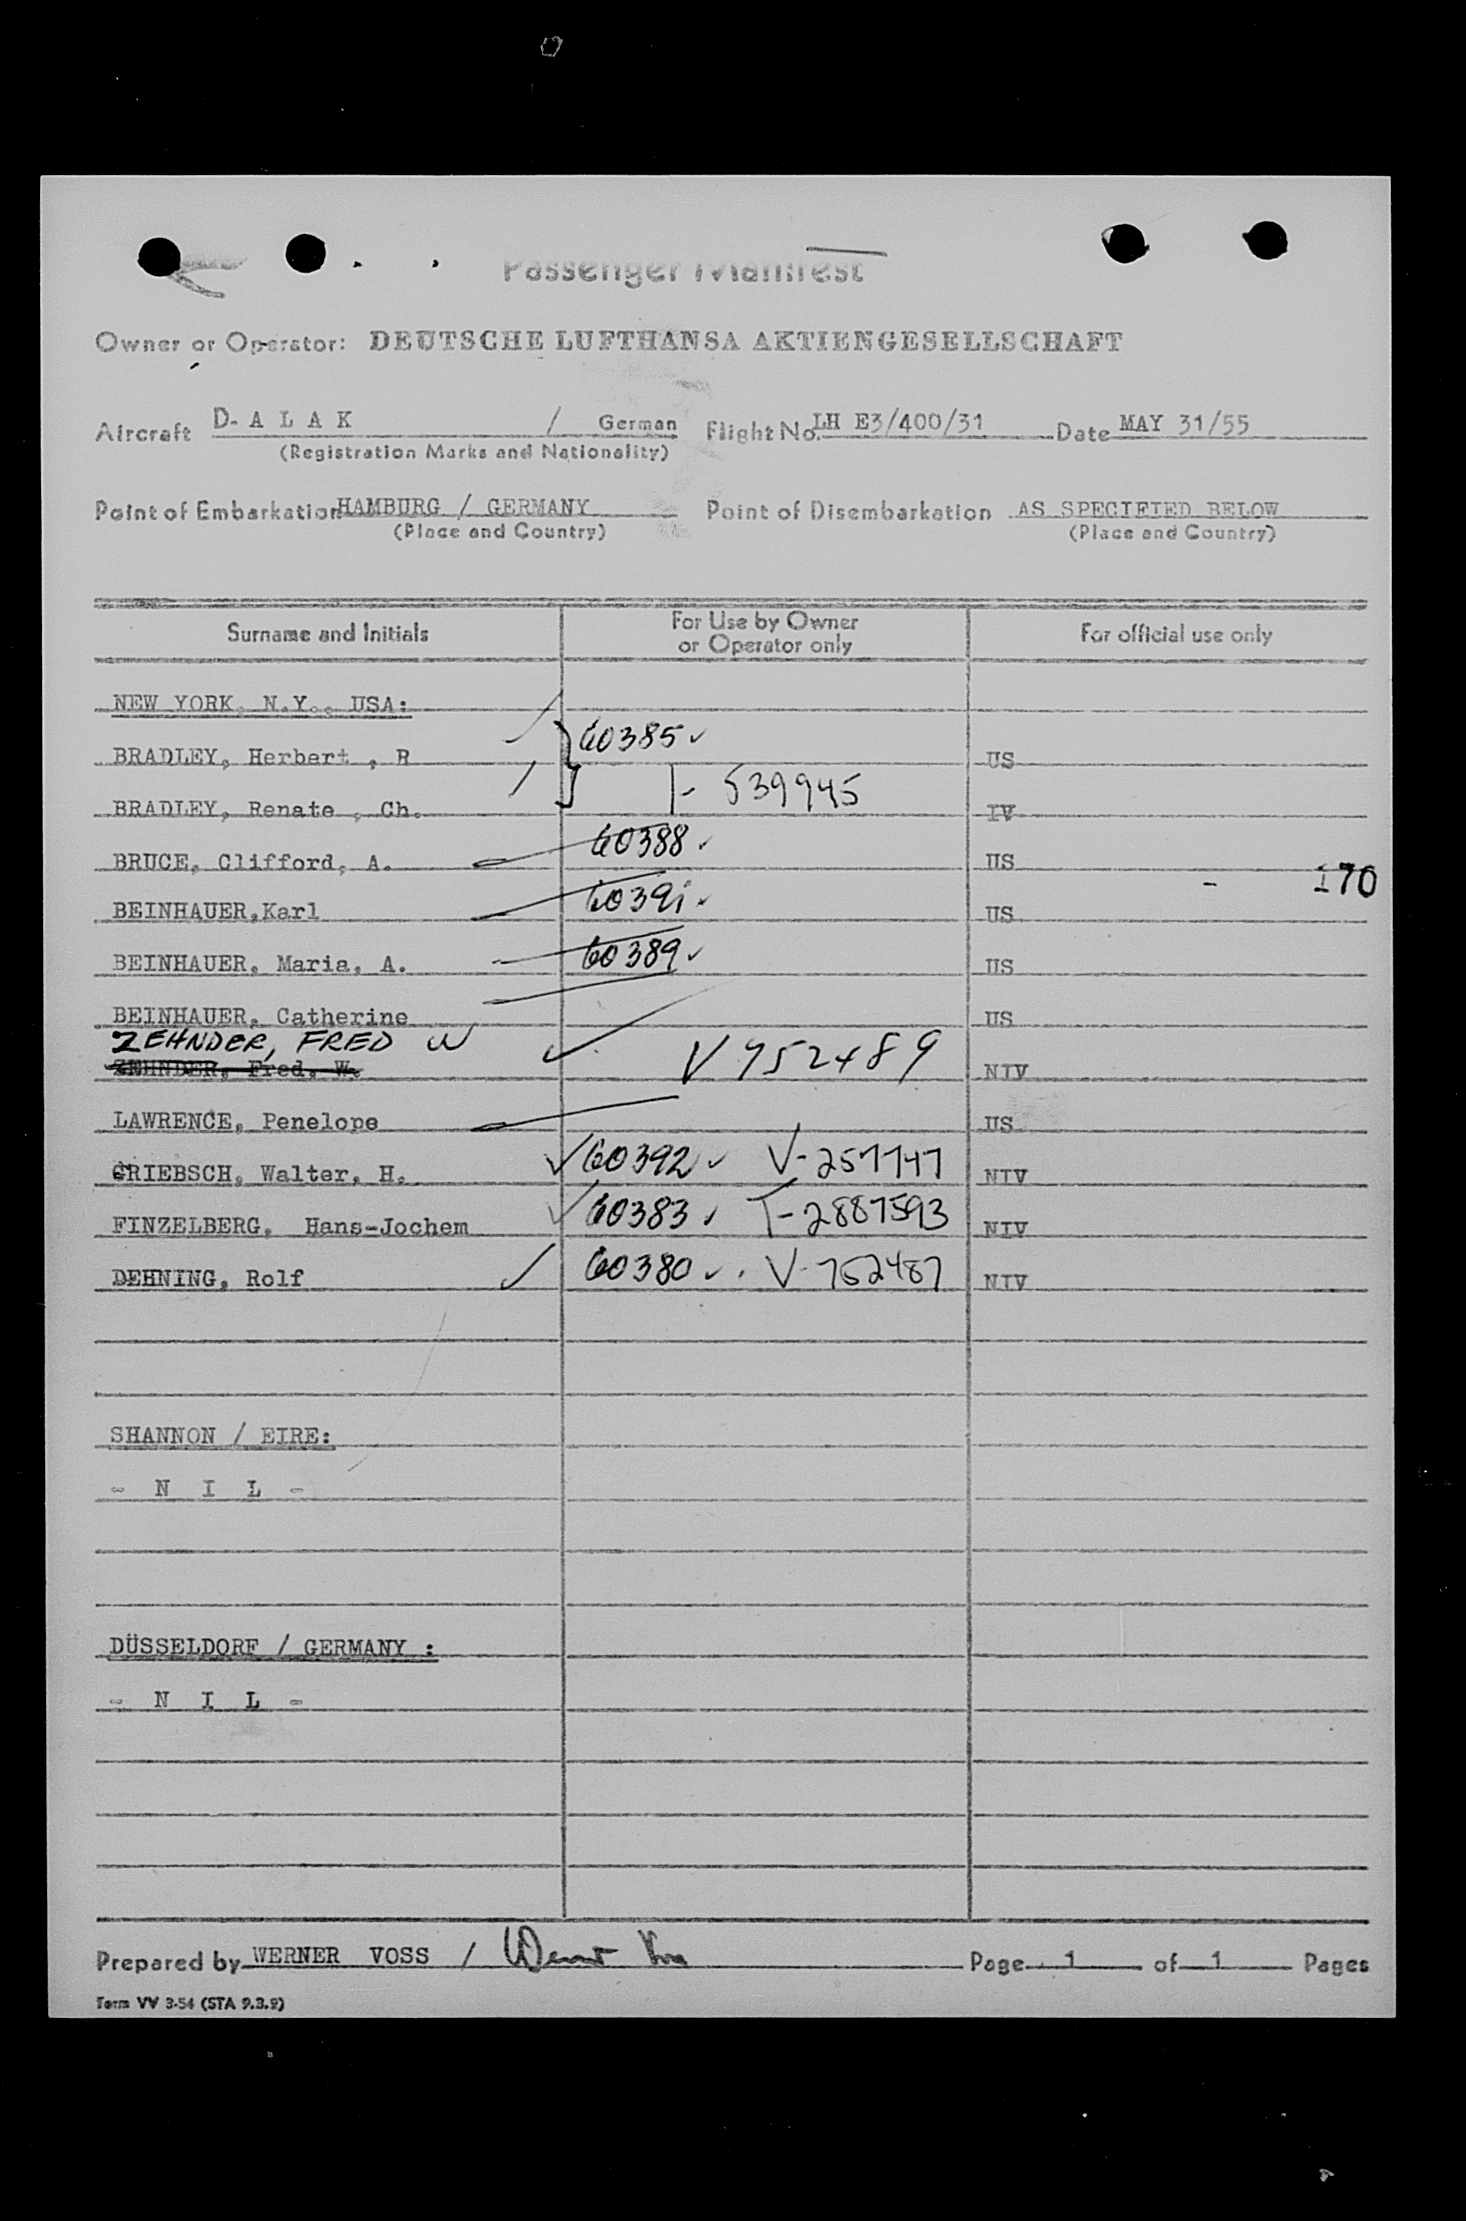 Passenger Manifest
Owner or Operator: DEUTSCHE LUFTHANSA AKTIENGESELLSCHAFT
Aircraft D- A L A K / German Flight No. LH E3/400/31 Date MAY 31/55
(Registration Marks and Nationality)
Point of Embarkation HAMBURG / GERMANY Point of Disembarkation AS SPECIFIED BELOW
(Place and Country) (Place and Country)
Surname and Initials For Use by Owner or Operator only For official use only
NEW YORK, N.Y., USA:
BRADLEY, Herbert , R 60385 ✓ US
BRADLEY, Renate , Ch. T- 539945 IV
BRUCE, Clifford, A. 60388 ✓ US
- 170
BEINHAUER,Karl 60391 ✓ US
BEINHAUER, Maria, A. 60389 ✓ US
BEINHAUER, Catherine US
ZEHNDER, FRED W
ZEHNDER, Fred, W. ✓ V 752489 NIV
LAWRENCE, Penelope US
GRIEBSCH, Walter, H. ✓ 60392 ✓ V-257747 NIV
FINZELBERG, Hans-Jochem ✓ 60383 ✓ T-2887593 NIV
DEHNING, Rolf ✓ 60380 ✓ V-752487 NIV
SHANNON / EIRE:
- N I L -
DÜSSELDORF / GERMANY :
- N I L -
Prepared by WERNER VOSS / Werner Voss Page 1 of 1 Pages
Form VV 3-54 (STA 9.3.9)